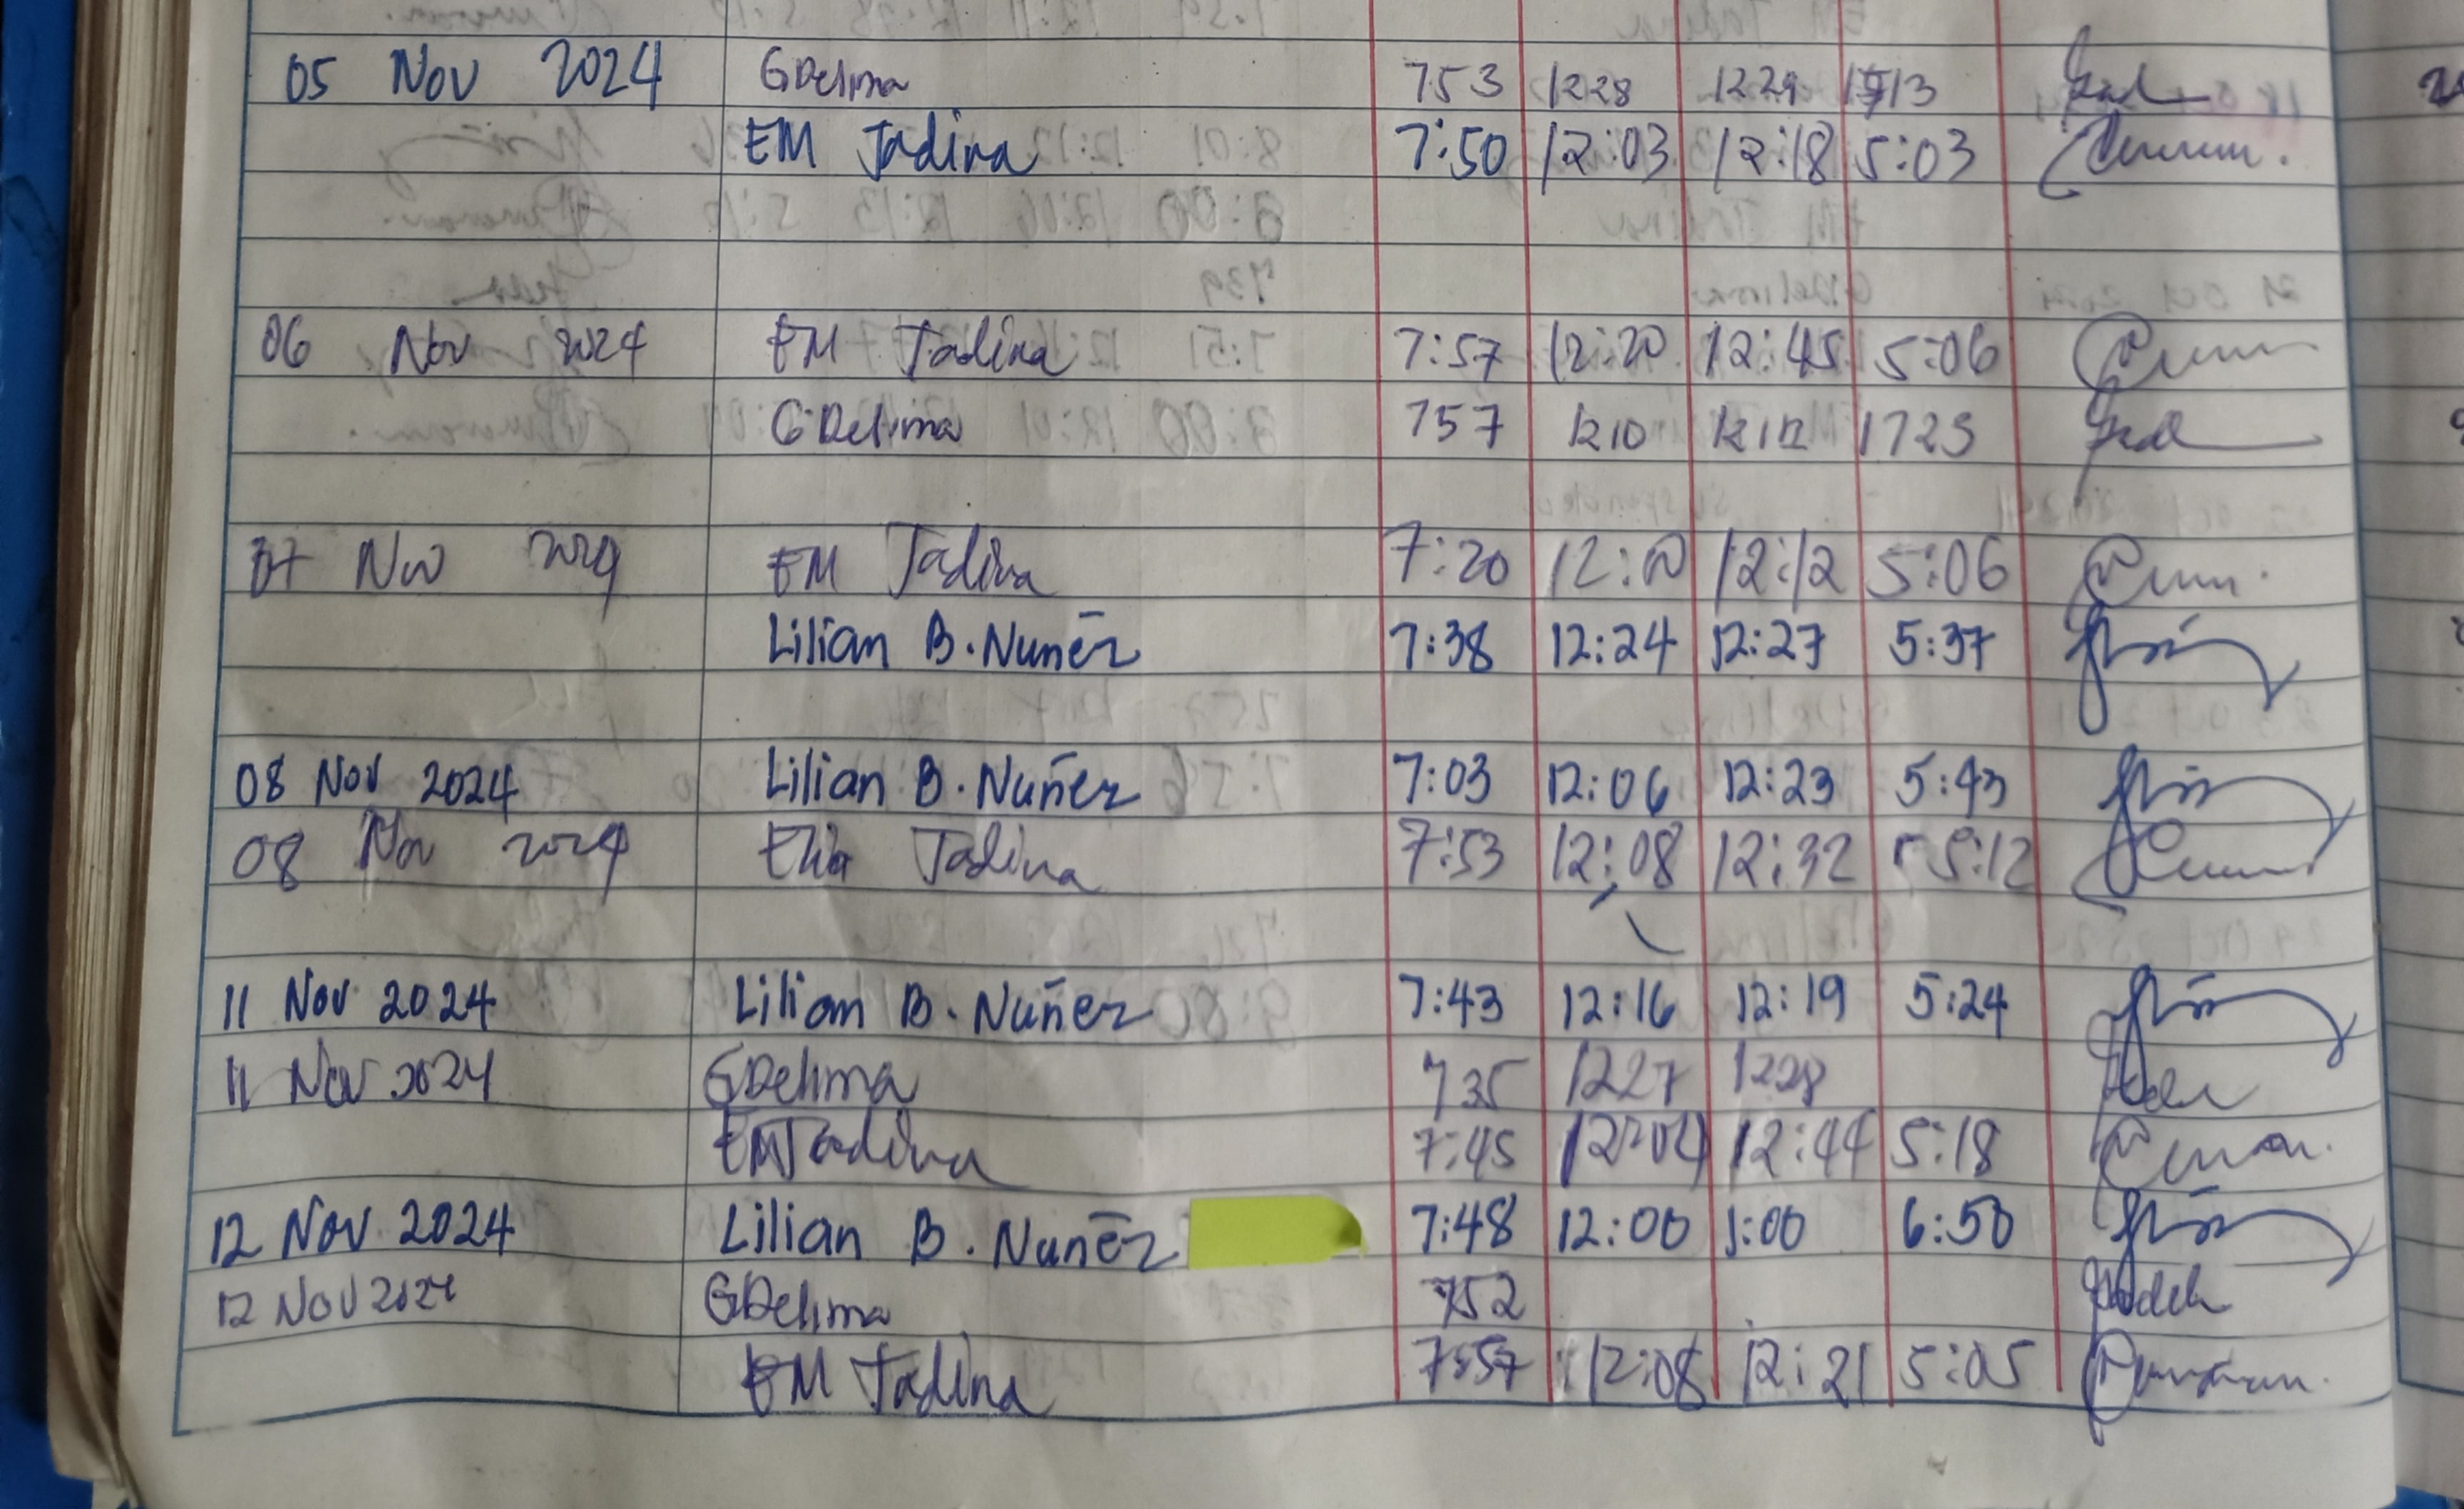 05 Nov 2024 GDelima 753 1228 1229 1713
EM Tadina 7:50 12:03 12:18 5:03
06 Nov 2024 EM Tadina 7:57 12:20 12:45 5:06
GDelima 757 1210 1212 1723
07 Nov 2024 EM Tadina 7:20 12:10 12:12 5:06
Lilian B. Nuñez 7:38 12:24 12:27 5:37
08 Nov 2024 Lilian B. Nuñez 7:03 12:06 12:23 5:43
08 Nov 2024 Ella Tadina 7:53 12:08 12:32 5:12
11 Nov 2024 Lilian B. Nuñez 7:43 12:16 12:19 5:24
11 Nov 2024 GDelima 735 1227 1228
EM Tadina 7:45 12:04 12:44 5:18
12 Nov 2024 Lilian B. Nuñez 7:48 12:00 1:00 6:50
12 Nov 2024 GDelima 752
EM Tadina 7:57 12:08 12:21 5:05